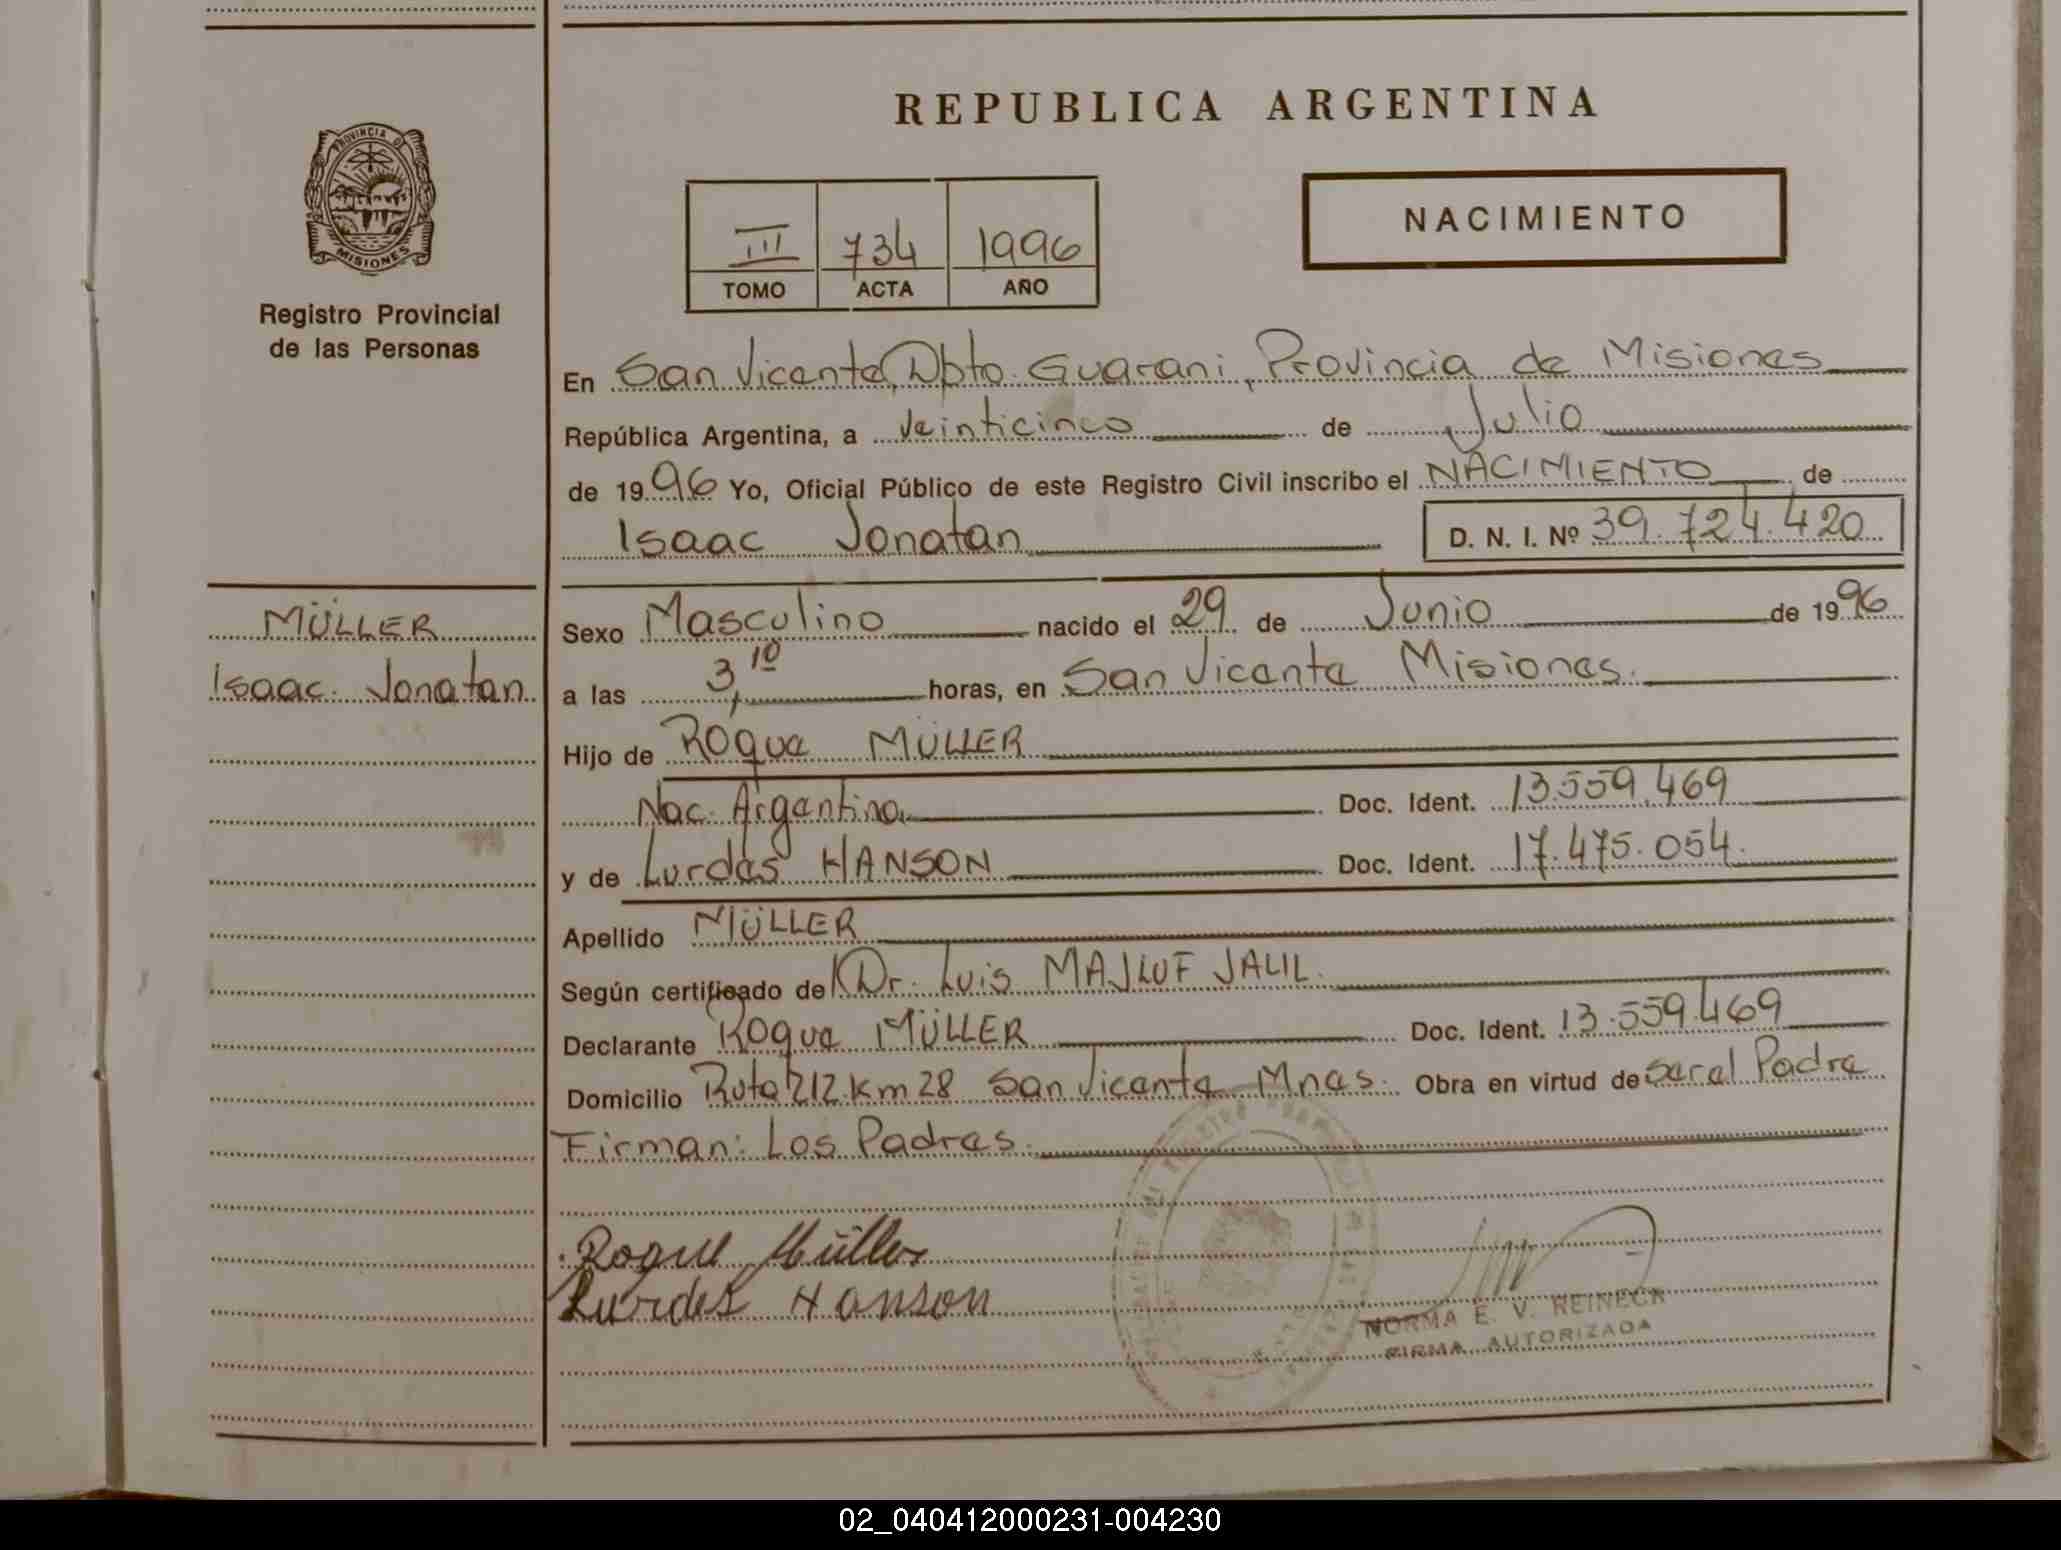 REPUBLICA ARGENTINA
PROVINCIA DE
MISIONES
Registro Provincial
de las Personas
III 734 1996
TOMO ACTA AÑO
NACIMIENTO
En San Vicente, Dpto. Guarani, Provincia de Misiones
República Argentina, a veinticinco de Julio
de 1996 Yo, Oficial Público de este Registro Civil inscribo el NACIMIENTO de
Isaac Jonatan D. N. I. Nº 39.724.420
MÜLLER
Isaac Jonatan
Sexo Masculino nacido el 29 de Junio de 1996
a las 3,10 horas, en San Vicente Misiones.
Hijo de Roque MÜLLER
Nac. Argentina Doc. Ident. 13.559.469
y de Lurdes HANSON Doc. Ident. 17.475.054.
Apellido MÜLLER
Según certificado de Dr. Luis MAJLUF JALIL.
Declarante Roque MÜLLER Doc. Ident. 13.559.469
Domicilio Ruta 212 km 28 San Vicente Mnes. Obra en virtud de ser el Padre
Firman: Los Padres.
Roque Müller
Lurdes Hanson
NORMA E. V. REINECK
FIRMA AUTORIZADA
02_040412000231-004230